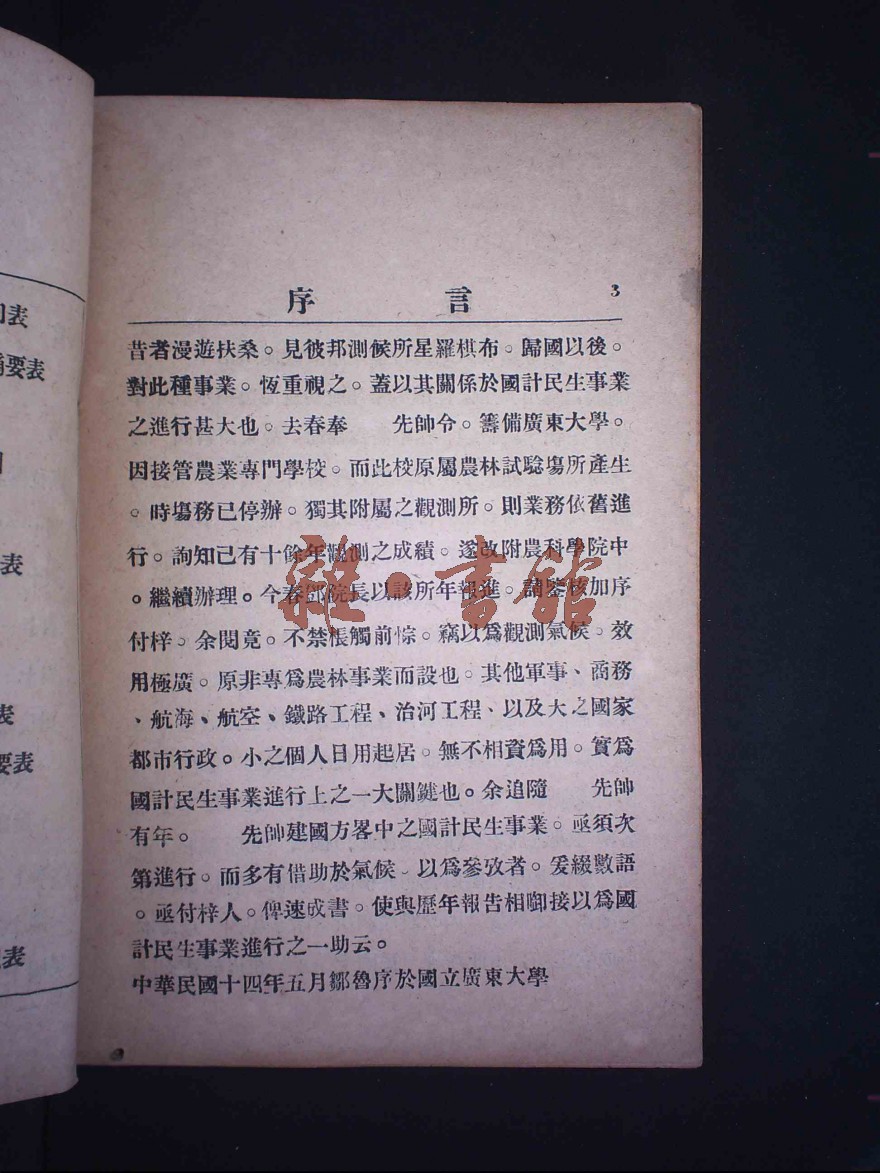 序言
3
昔者漫遊扶桑。見彼邦測候所星羅棋布。歸國以後。
對此種事業。恆重視之。蓋以其關係於國計民生事業
之進行甚大也。去春奉　　先帥令。籌備廣東大學。
因接管農業專門學校。而此校原屬農林試驗塲所產生
。時塲務已停辦。獨其附屬之觀測所。則業務依舊進
行。詢知已有十餘年觀測之成績。遂改附農科學院中
。繼續辦理。今春鄧院長以該所年報進。請鑒核加序
付梓。余閱竟。不禁棖觸前悰。竊以爲觀測氣候。效
用極廣。原非專爲農林事業而設也。其他軍事、商務
、航海、航空、鐵路工程、治河工程、以及大之國家
都市行政。小之個人日用起居。無不相資爲用。實爲
國計民生事業進行上之一大關鍵也。余追隨　　先帥
有年。　　先帥建國方畧中之國計民生事業。亟須次
第進行。而多有借助於氣候。以爲參攷者。爰綴數語
。亟付梓人。俾速成書。使與歷年報告相啣接以爲國
計民生事業進行之一助云。
中華民國十四年五月鄒魯序於國立廣東大學
表
要表
表
表
要表
表
雜·書館